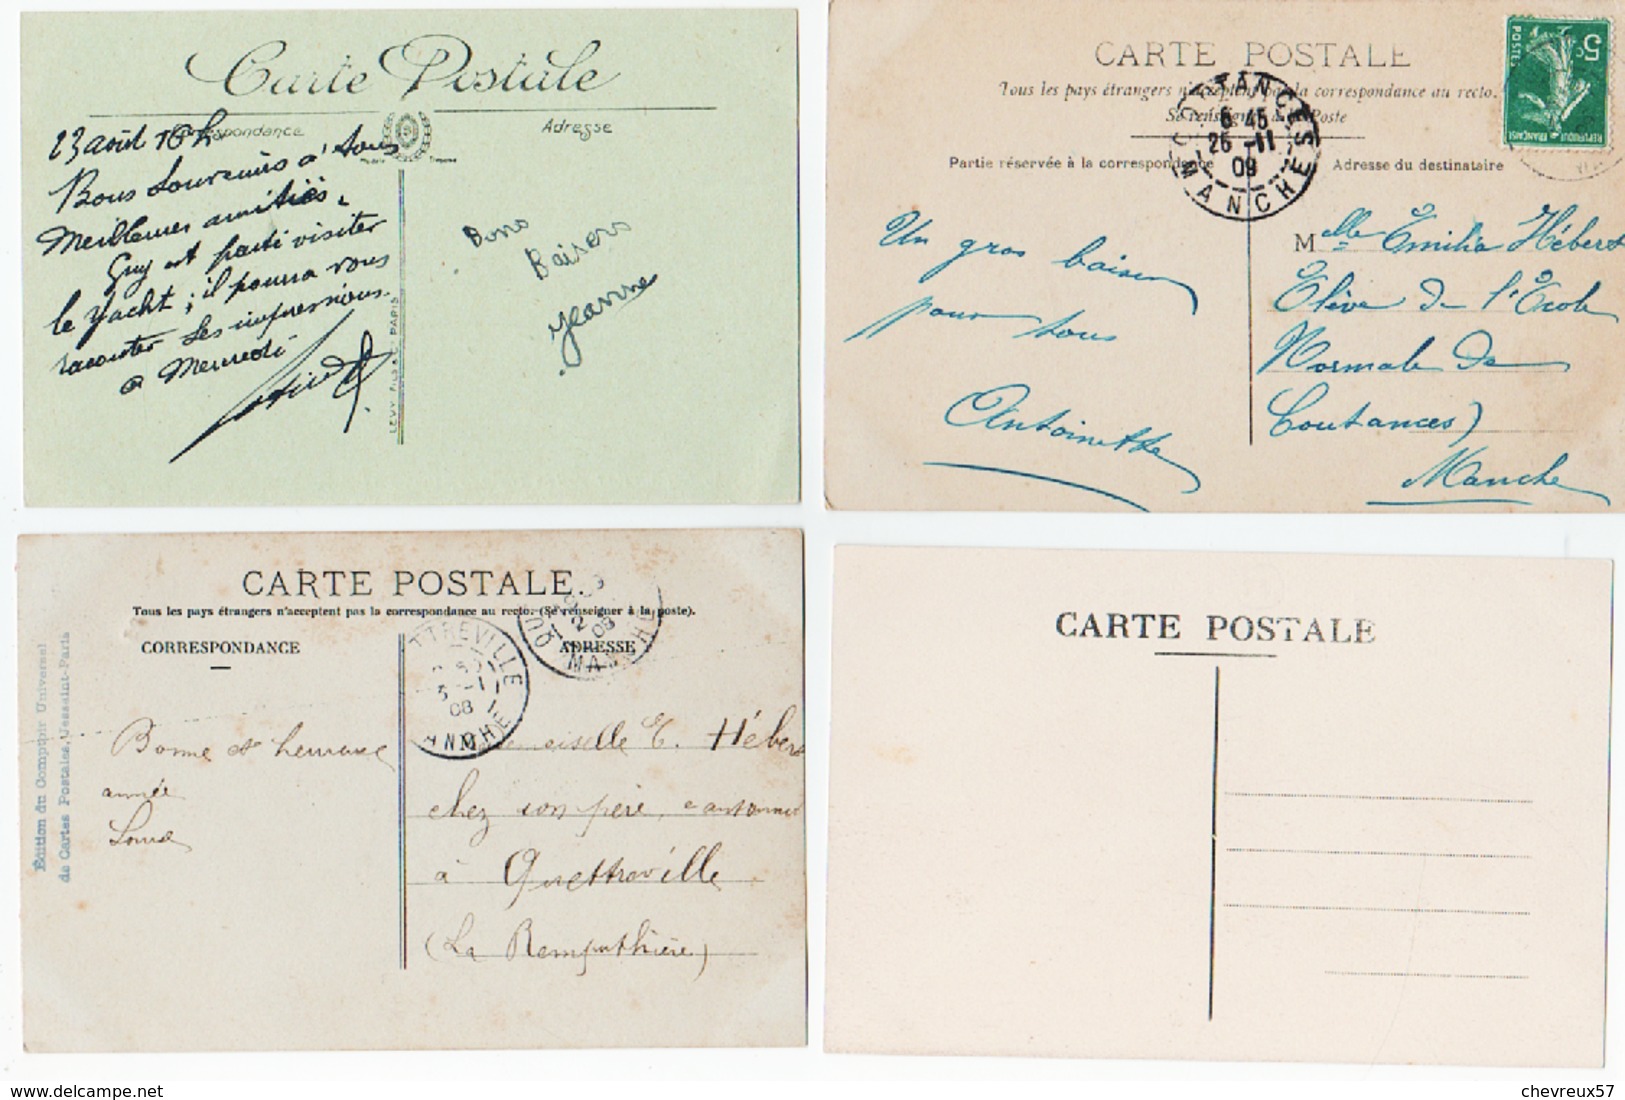 Carte Postale
Correspondance
Adresse
23 août 16h
Bons Souvenirs à tous
Meilleures amitiés.
Guy est parti visiter
le Yacht ; il pourra vous
raconter ses impressions.
à Mercredi
Bons
Baisers
Jeanne
LEVY FILS & Cie PARIS
CARTE POSTALE
Tous les pays étrangers n'acceptent pas la correspondance au recto.
Se renseigner à la Poste
Partie réservée à la correspondance
Adresse du destinataire
COUTANCES
6 45
26 -11
09
MANCHE
5c
POSTES
REPUBLIQUE FRANÇAISE
Un gros baiser
pour tous
Antoinette
Melle Emilia Hébert
Elève de l'Ecole
Normale de
Coutances)
Manche
CARTE POSTALE.
Tous les pays étrangers n'acceptent pas la correspondance au recto. (Se renseigner à la poste).
CORRESPONDANCE
ADRESSE
Édition du Comptoir Universel
de Cartes Postales, Jessaint-Paris
TTREVILLE
08
MANCHE
QU
08
MANCHE
Bonne et heureuse
année
Mademoiselle E. Hébert
chez son père, cantonnier
à Quettreville
(La
CARTE POSTALE
chevreux57